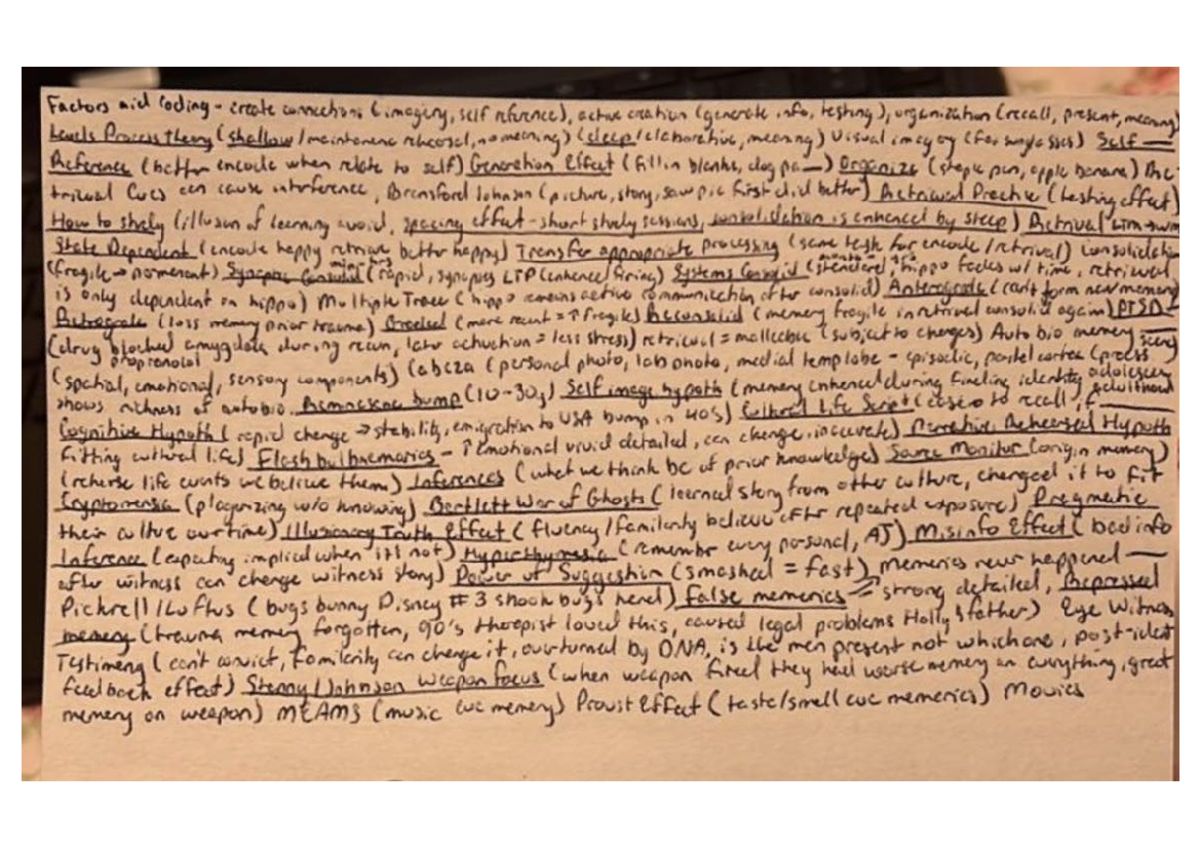 Factors aid coding - create connections (imagery, self reference), active creation (generate info, testing), organization (recall, present, meaning)
Levels Process theory (shallow/maintenance rehearsal, no meaning) (deep/elaborative, meaning) Visual imagery Self
Reference (better encode when relate to self) Generation Effect (fill in blanks, dog pa—) Organize (staple pen, apple banana) Re
trieval Cues can cause interference, Bransford Johnson (picture, story, saw pic first did better) Retrieval Practice (testing effect)
How to study (illusion of learning avoid, spacing effect - short study sessions, consolidation is enhanced by sleep) Retrival LTM→WM
State Dependent (encode happy retrieve better happy) Transfer appropriate processing (same task for encode/retrival) Consolidation
(fragile → permenent) Synaptic Consolid (rapid, synapses LTP (enhance firing) Systems Consolid (standard, hippo fades w/ time, retrieval
is only dependent on hippo) Multiple Trace (hippo remains active communication after consolid) Anterograde (can't form new memory)
Retrograde (loss memory prior trauma) Graded (more recent = ↑ fragile) Reconsolid (memory fragile in retrieval consolid again) PTSD
(drug blocked amygdala during recon, later activation = less stress) retrieval = malleable (subject to changes) Auto bio memory
propranolol
(spatial, emotional, sensory components) Cabeza (personal photo, lab photo, medial temp lobe - episodic, parietal cortex (process
shows richness of autobio. Reminescne bump (10-30) Self image hypoth (memory enhanced during finding identity adolescen adulthood
Cognitive Hypoth (rapid change → stability, emigration to USA bump in 40s) Cultural Life Script (ease to recall if
fitting cultural life) Flash bulb memories - ↑ emotional vivid detailed, can change, inaccurate) Narrative Rehearsal Hypoth
(reherse life events we believe them) Inferences (what we think bc of prior knowledge) Source Monitor (origin memory)
Cryptomensia (plagurizing w/o knowing) Bartlett War of Ghosts (learned story from other culture, changed it to fit
their culture overtime) Illusionary Truth Effect (fluency/familarity believe after repeated exposure) Pragmatic
Inference (expecting implied when it's not) Hyperthymesia (remember every personal, AJ) Misinfo Effect (bad info
after witness can change witness story) Power of Suggestion (smashed = fast) memories never happened
Pickrell/Loftus (bugs bunny Disney #3 shook bugs hand) False memories - strong detailed, Repressed
memory (trauma memory forgotten, 90's therapist loved this, caused legal problems Holly & father) Eye Witness
Testimeny (can't convict, familarity can change it, overturned by DNA, is the man present not which one, post-ident
feedback effect) Stanny/Johnson Weapon focus (when weapon fired they had worse memory on everything, great
memory on weapon) MEAMS (music cue memory) Proust Effect (taste/smell cue memories) Movies